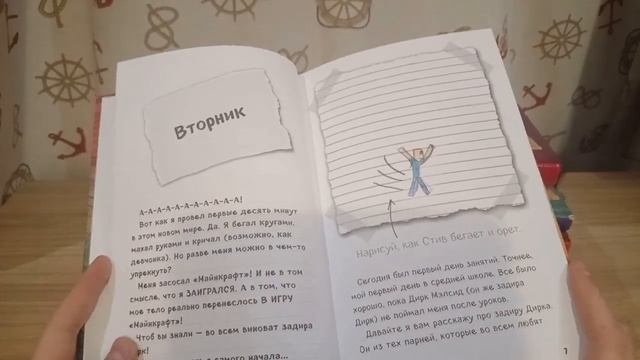 Вторник
А-А-А-А-А-А-А-А-А-А!
Вот как я провел первые десять минут
в этом новом мире. Да. Я бегал кругами,
махал руками и кричал (возможно, как
девчонка). Но разве меня можно в чем-то
упрекнуть?
Меня засосал «Майнкрафт»! И не в том
смысле, что я ЗАИГРАЛСЯ. А в том, что
мое тело реально перенеслось В ИГРУ
«Майнкрафт»!
Чтоб вы знали – во всем виноват задира
самого начала...
Нарисуй, как Стив бегает и орет.
Сегодня был первый день занятий. Точнее,
мой первый день в средней школе. Все было
хорошо, пока Дирк Мэлсид (он же задира
Дирк) не поймал меня после уроков.
Давайте я вам расскажу про задиру Дирка.
Он из тех парней, которые во всем любят
7